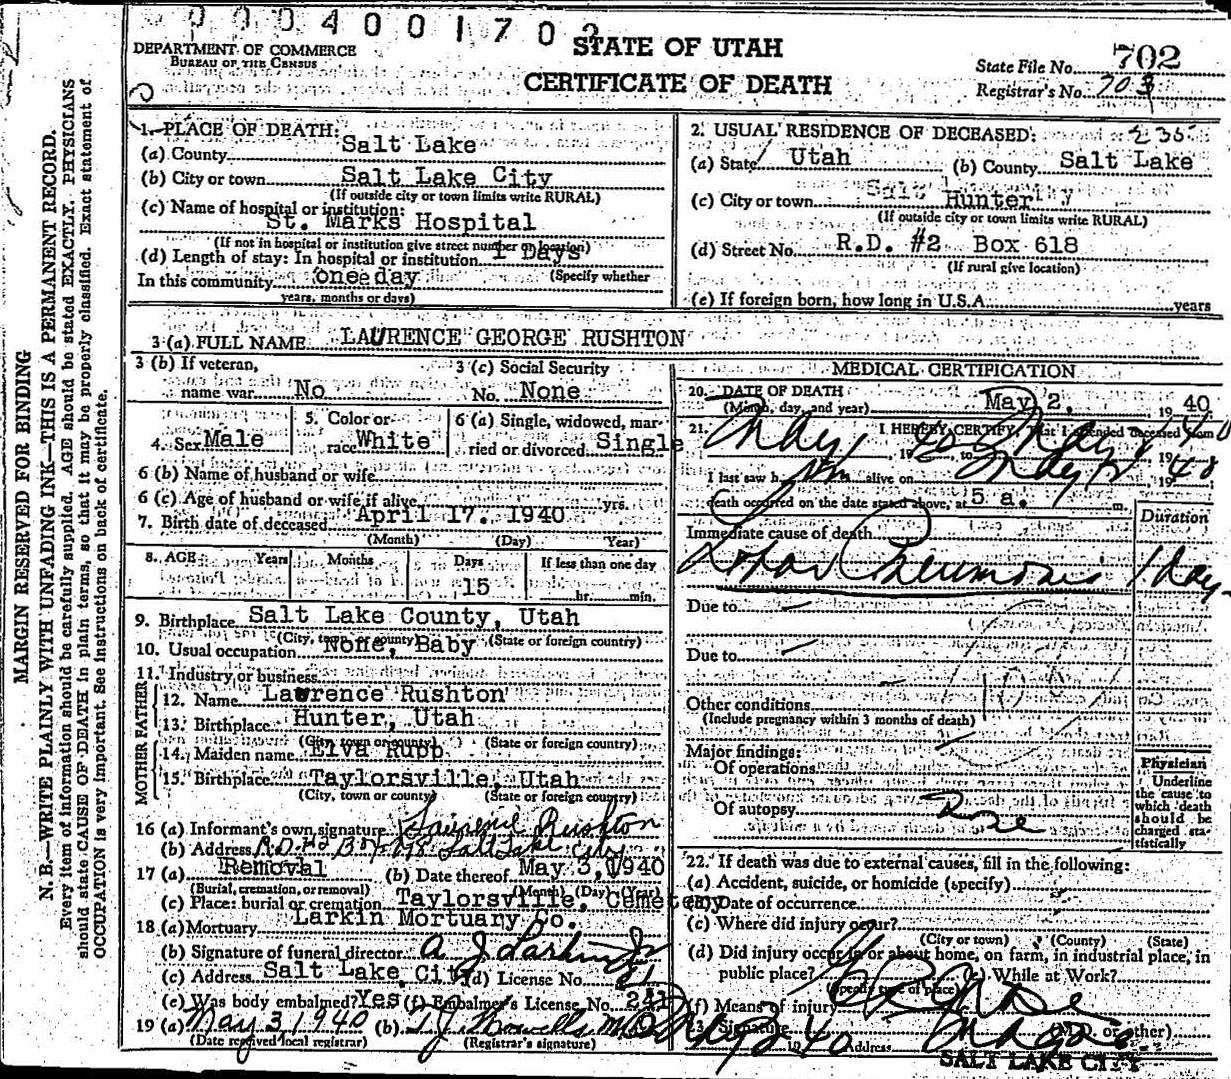 0004001702
DEPARTMENT OF COMMERCE
BUREAU OF THE CENSUS
STATE OF UTAH
CERTIFICATE OF DEATH
State File No. 702
Registrar's No. 703
MARGIN RESERVED FOR BINDING
N. B.—WRITE PLAINLY WITH UNFADING INK—THIS IS A PERMANENT RECORD.
Every item of information should be carefully supplied. AGE should be stated EXACTLY. PHYSICIANS
should state CAUSE OF DEATH in plain terms, so that it may be properly classified. Exact statement of
OCCUPATION is very important. See instructions on back of certificate.
1. PLACE OF DEATH:
(a) County Salt Lake
(b) City or town Salt Lake City
(If outside city or town limits write RURAL)
(c) Name of hospital or institution:
St. Marks Hospital
(If not in hospital or institution give street number or location)
(d) Length of stay: In hospital or institution 1 Days
In this community one day (Specify whether
years, months or days)
2. USUAL RESIDENCE OF DECEASED: 235
(a) State Utah (b) County Salt Lake
(c) City or town Hunter
(If outside city or town limits write RURAL)
(d) Street No. R.D. #2 Box 618
(If rural give location)
(e) If foreign born, how long in U.S.A. years
3 (a) FULL NAME LAURENCE GEORGE RUSHTON
3 (b) If veteran,
name war No
3 (c) Social Security
No. None
4. Sex Male
5. Color or
race White
6 (a) Single, widowed, mar-
ried or divorced Single
6 (b) Name of husband or wife
6 (c) Age of husband or wife if alive yrs.
7. Birth date of deceased April 17. 1940
(Month) (Day) (Year)
8. AGE Years Months Days If less than one day
15 hr. min.
9. Birthplace Salt Lake County, Utah
(City, town, or county) (State or foreign country)
10. Usual occupation None, Baby
11. Industry or business
FATHER
12. Name Lawrence Rushton
13. Birthplace Hunter, Utah
(City, town or county) (State or foreign country)
MOTHER
14. Maiden name Elva Rupp
15. Birthplace Taylorsville, Utah
(City, town or county) (State or foreign country)
16 (a) Informant's own signature Laurence Rushton
(b) Address R.D. #2 Box Salt Lake City
17 (a) Removal (b) Date thereof May 3, 1940
(Burial, cremation, or removal) (Month) (Day) (Year)
(c) Place: burial or cremation Taylorsville, Cemetery
18 (a) Mortuary Larkin Mortuary Co.
(b) Signature of funeral director A J Larkin Jr
(c) Address Salt Lake City (d) License No. 81
(e) Was body embalmed? Yes (f) Embalmer's License No.
19 (a) May 3, 1940 (b) M.D.
(Date received local registrar) (Registrar's signature)
MEDICAL CERTIFICATION
20. DATE OF DEATH
(Month, day, and year) May 2, 1940
21. I HEREBY CERTIFY, That I attended deceased from
May 1, 1940 to May 1940
I last saw him alive on May 2 1940
death occurred on the date stated above, at 5 a. m.
Immediate cause of death Duration
Lobar Pneumonia 1 day
Due to
Due to
Other conditions
(Include pregnancy within 3 months of death)
Major findings:
Of operations
Of autopsy
Physician
Underline
the cause to
which death
should be
charged sta-
tistically
22. If death was due to external causes, fill in the following:
(a) Accident, suicide, or homicide (specify)
(b) Date of occurrence
(c) Where did injury occur?
(City or town) (County) (State)
(d) Did injury occur in or about home, on farm, in industrial place, in
public place? (e) While at Work?
(Specify type of place)
(f) Means of injury
23. Signature (M.D. or other)
May 2 1940 Address
SALT LAKE CITY